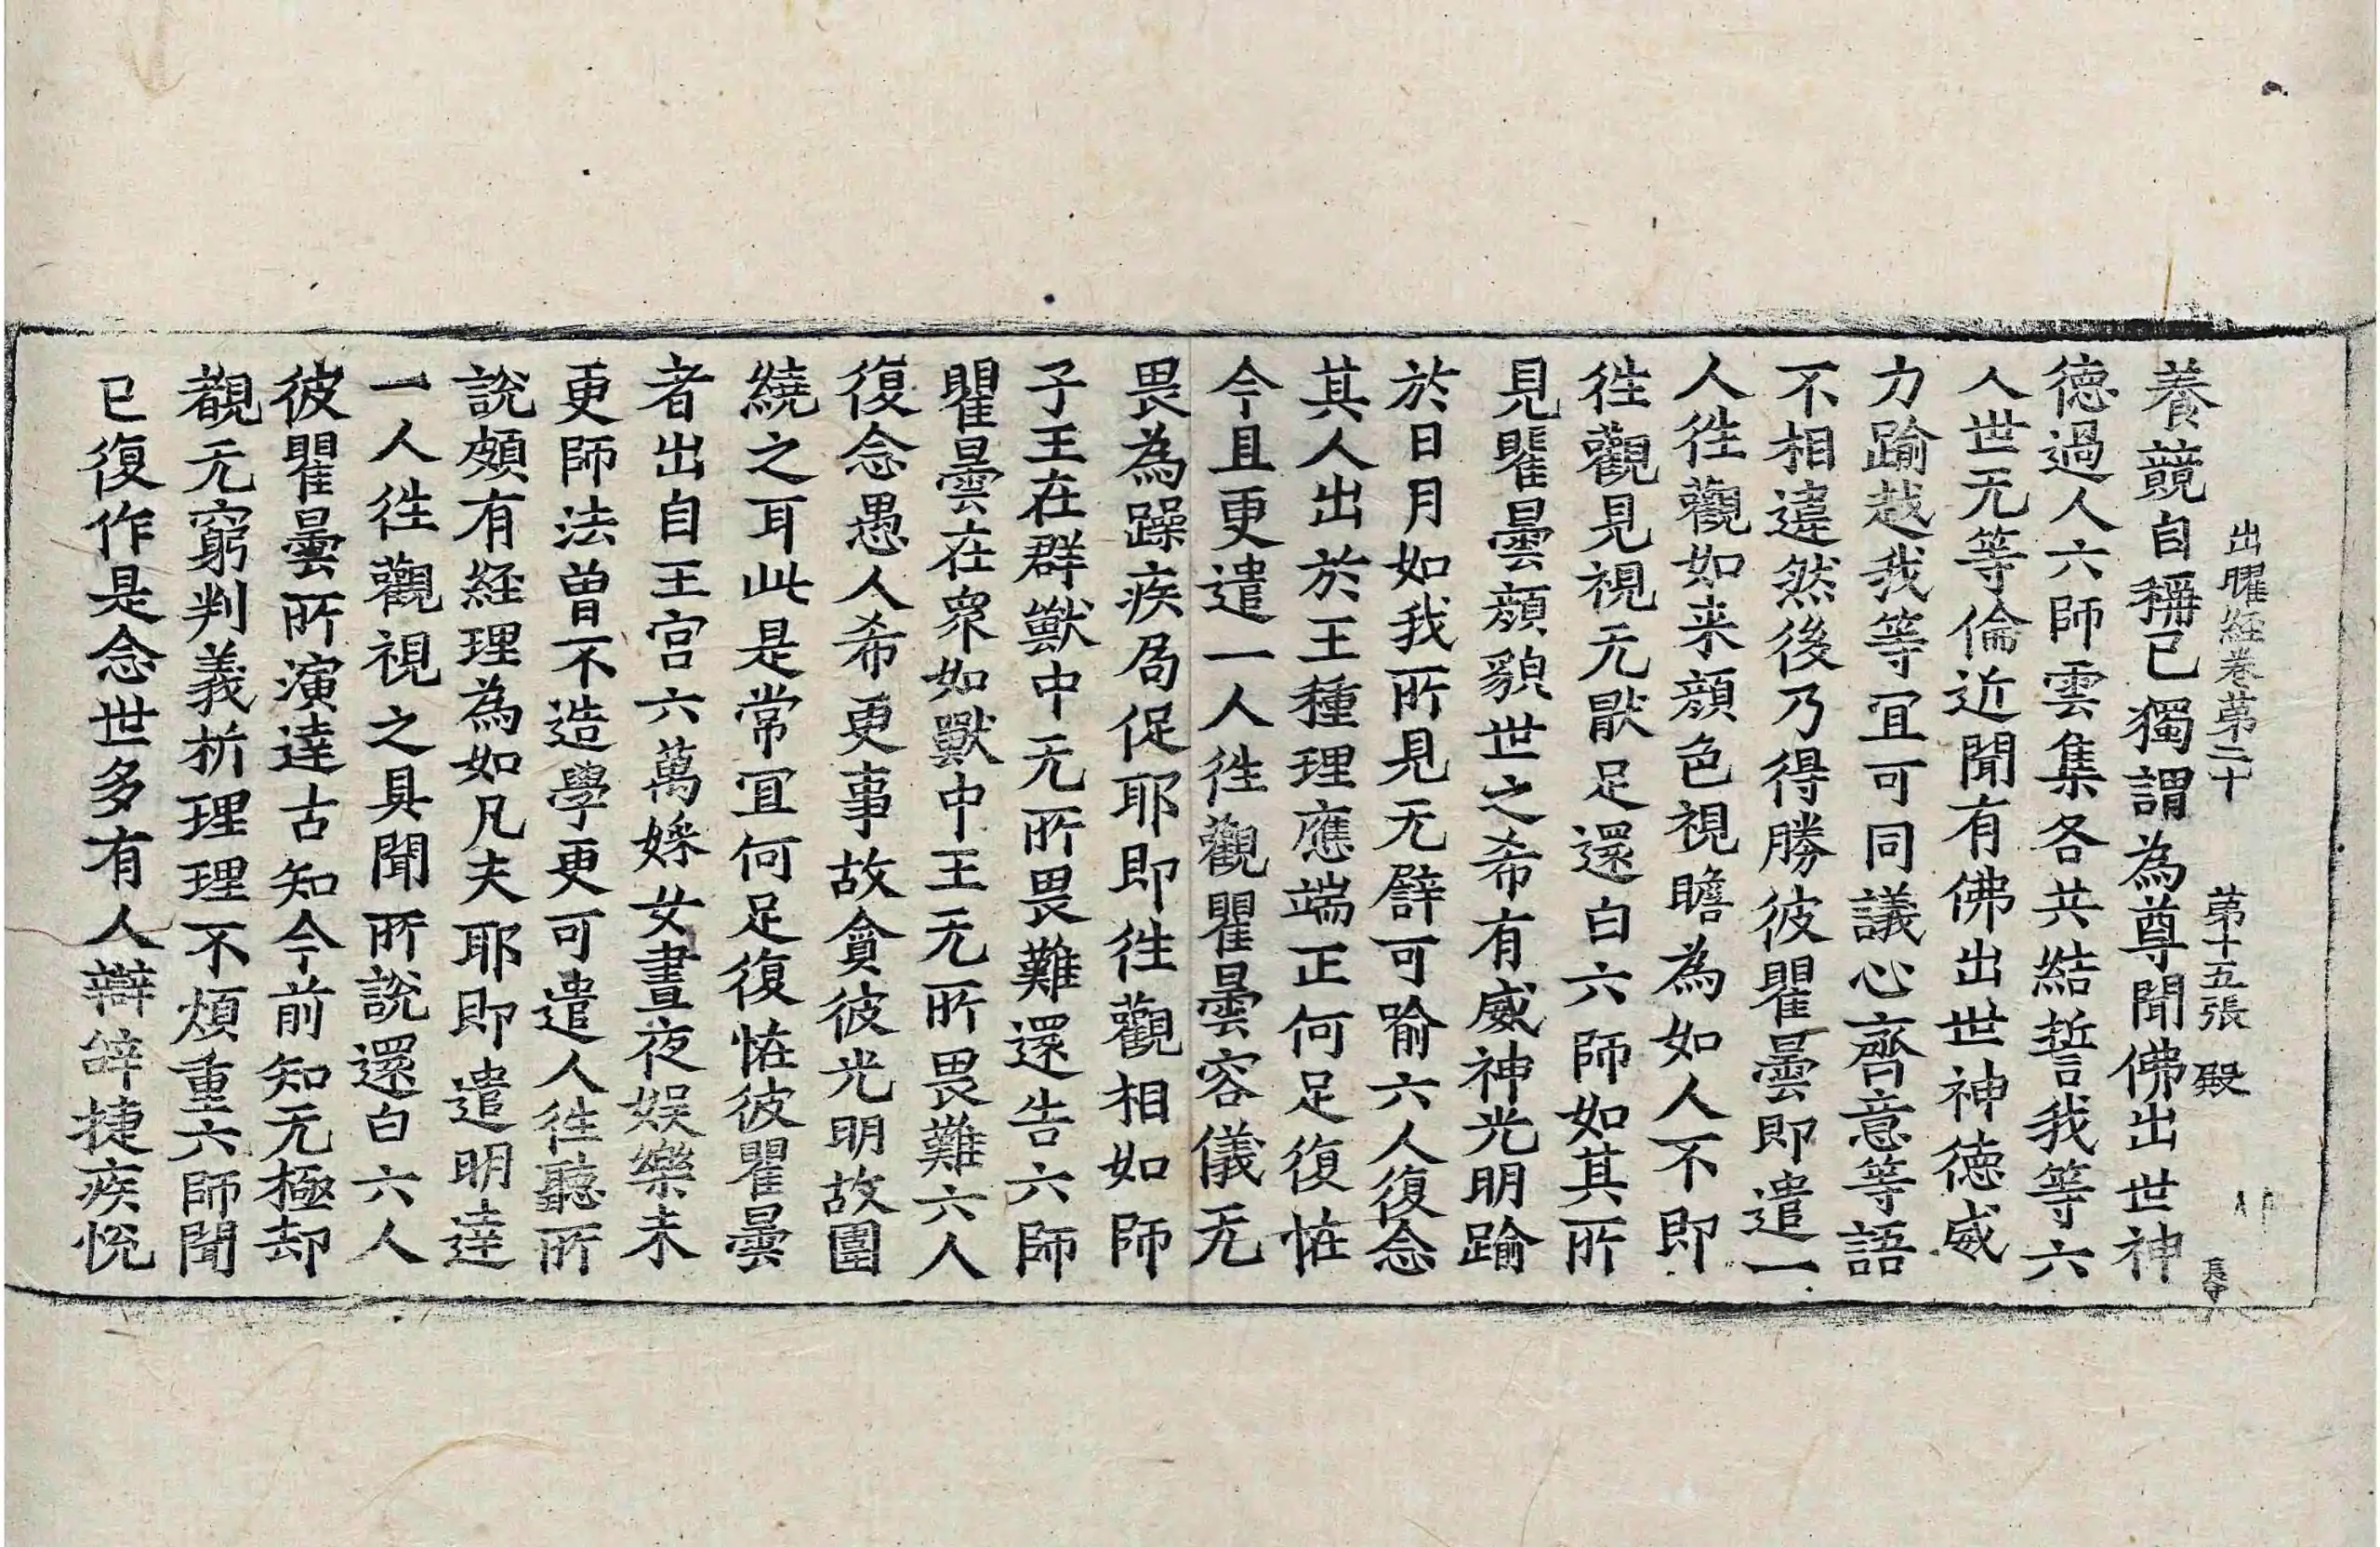 出曜経卷苐二十 苐十五張 殿
養競自稱已獨謂為尊聞佛出世神
德過人六師雲集各共結誓我等六
人世无等倫近聞有佛出世神徳威
力踰越我等冝可同議心齊意等語
不相違然後乃得勝彼瞿曇即遣一
人徃觀如来顔色視瞻為如人不即
徃觀見視无猒足還白六師如其所
見瞿曇顔貌世之希有威神光明踰
於日月如我所見无譬可喻六人復念
其人出於王種理應端正何足復恠
今且更遣一人徃觀瞿曇容儀无
畏為躁疾局促耶即徃觀相如師
子王在群獸中无所畏難還告六師
瞿曇在衆如獸中王无所畏難六人
復念愚人希更事故貪彼光明故圍
繞之耳此是常冝何足復恠彼瞿曇
者出自王宫六萬婇女晝夜娱樂未
更師法曽不造學更可遣人徃聽所
說頗有経理為如凡夫耶即遣明達
一人徃觀視之具聞所說還白六人
彼瞿曇所演達古知今前知无極却
覩无窮判義析理理不煩重六師聞
已復作是念世多有人辯辞捷疾悅